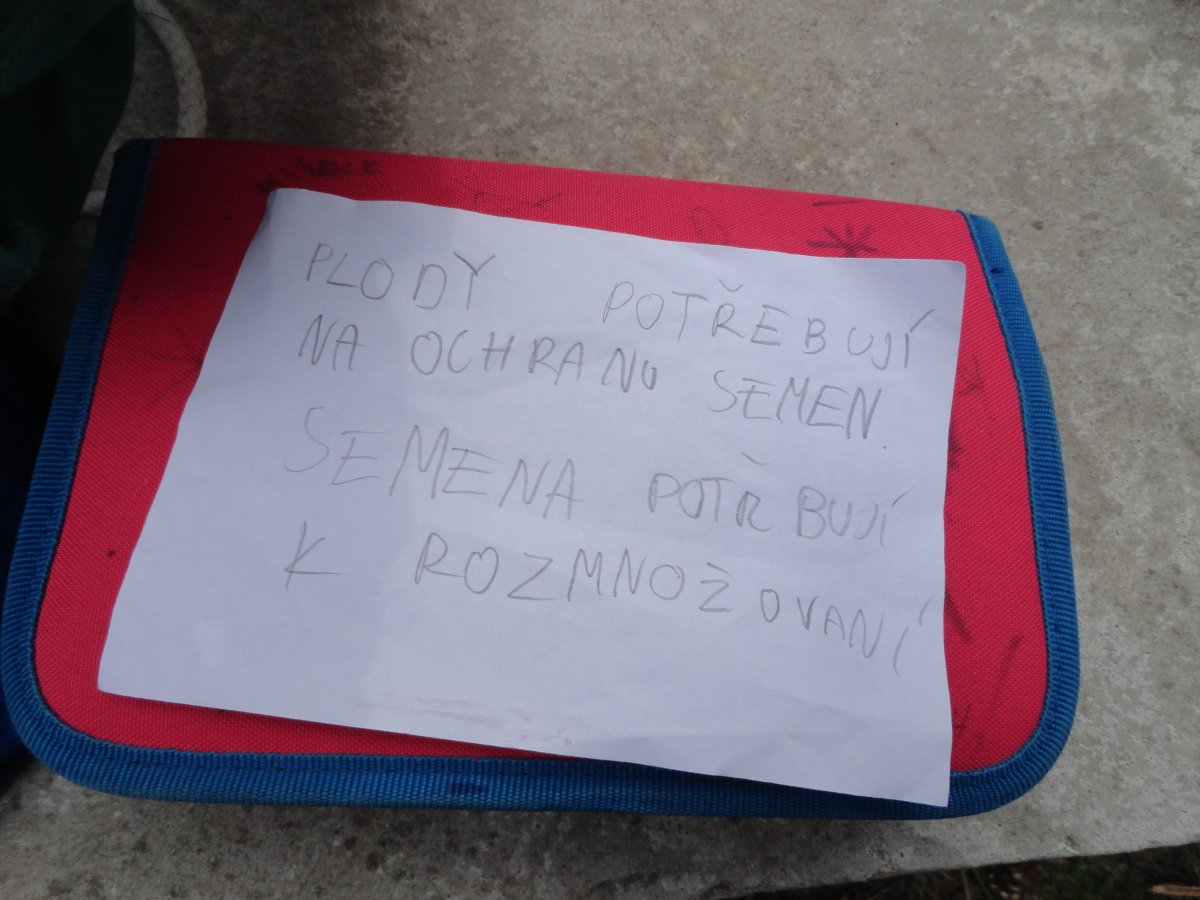 PLODY POTŘEBUJÍ
NA OCHRANU SEMEN.
SEMENA POTŘBUJÍ
K ROZMNOŽOVANÍ